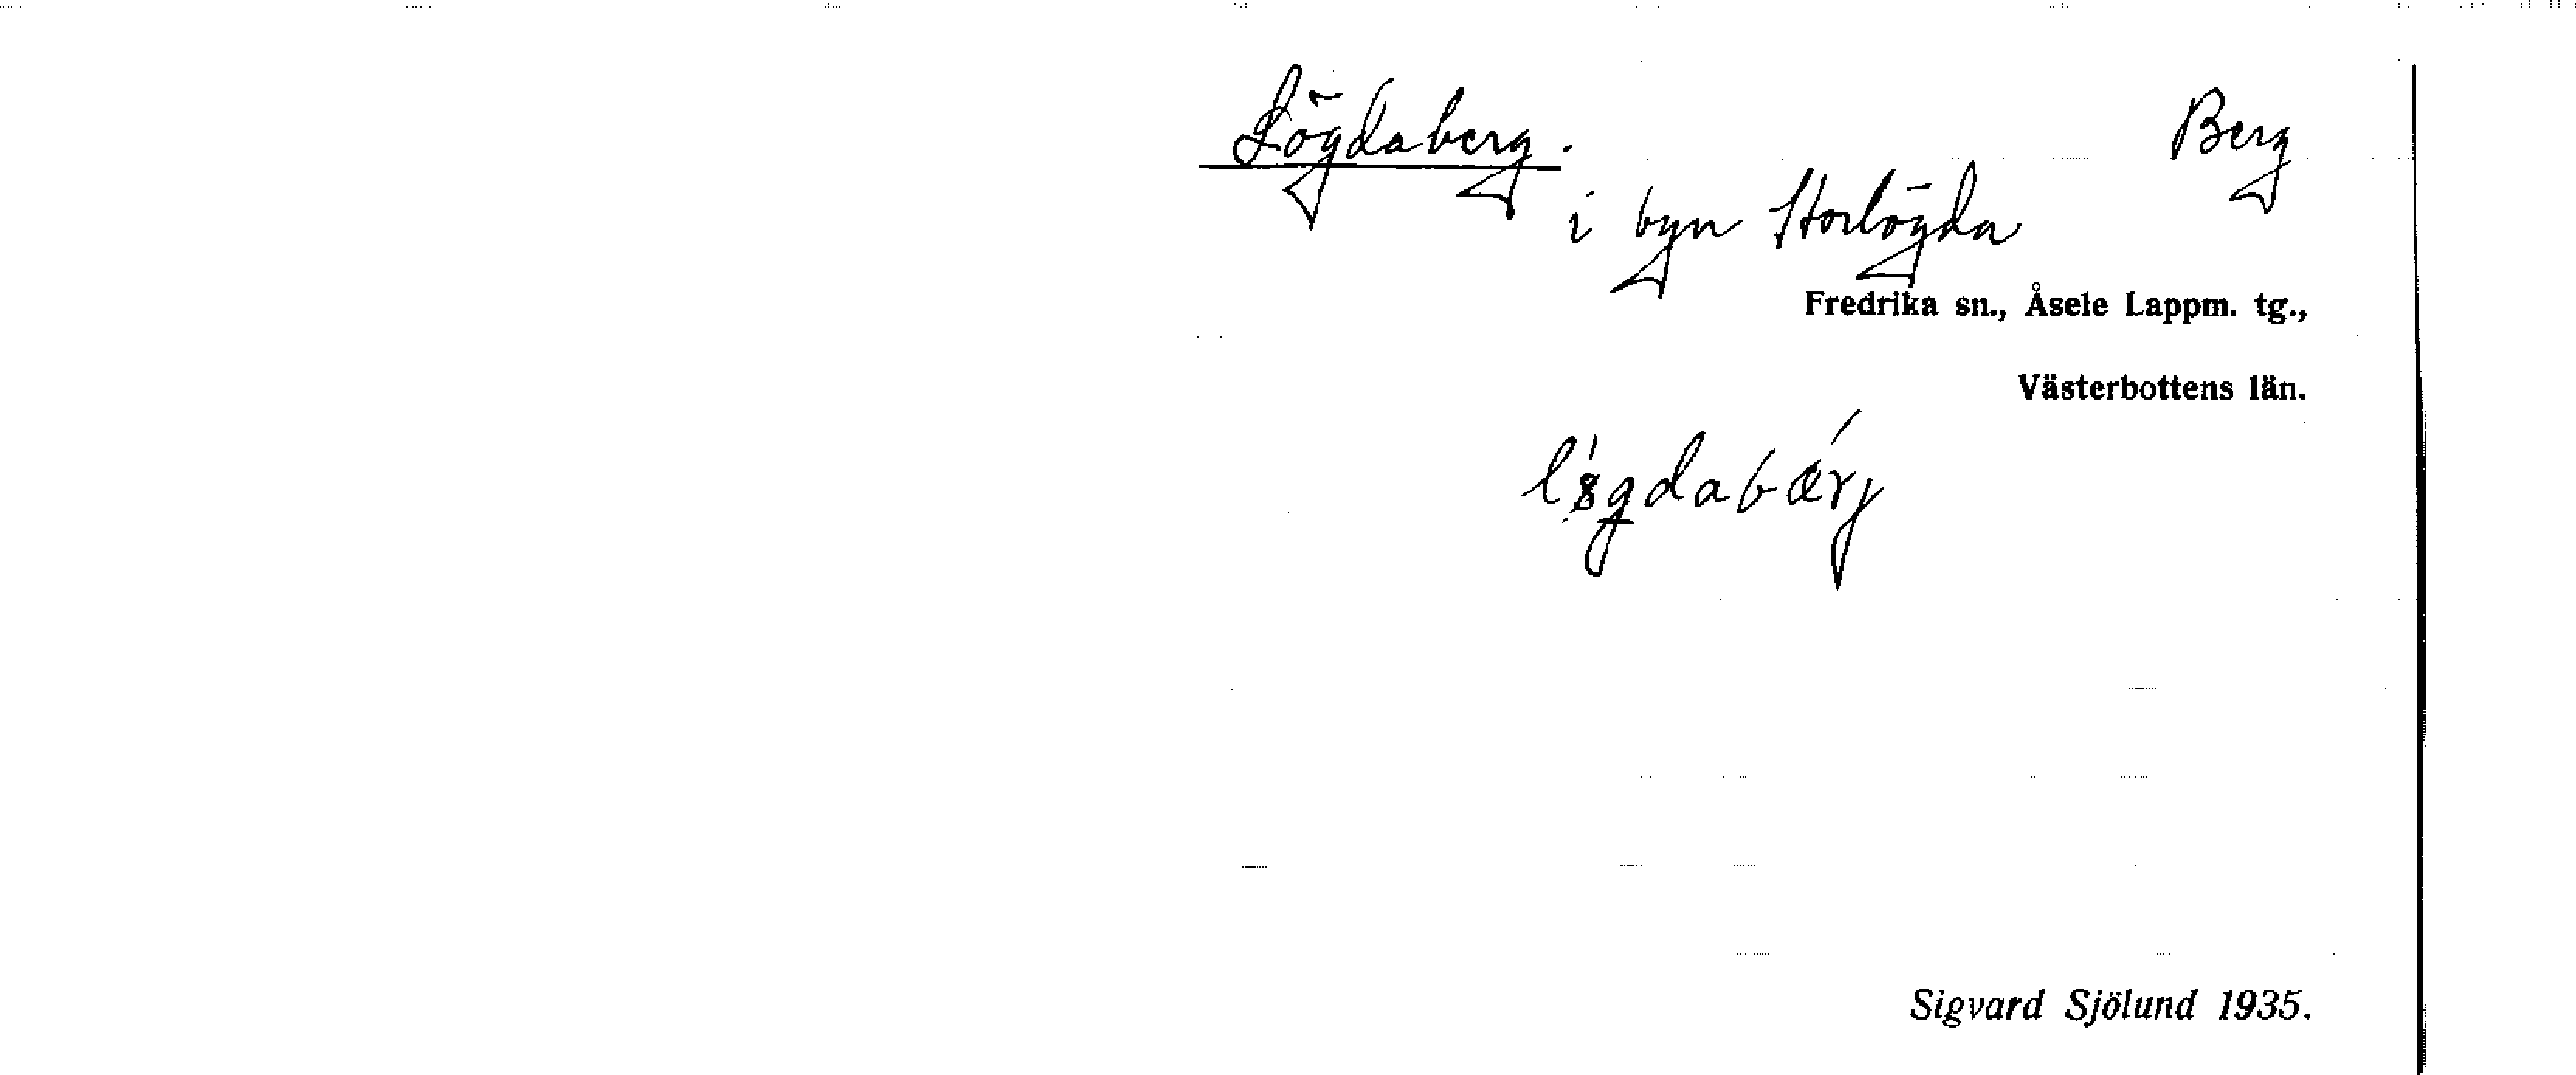 Lögdaberg. Berg
i byn Storlögda
Fredrika sn., Åsele Lappm. tg.,
Västerbottens län.
Sigvard Sjölund 1935.